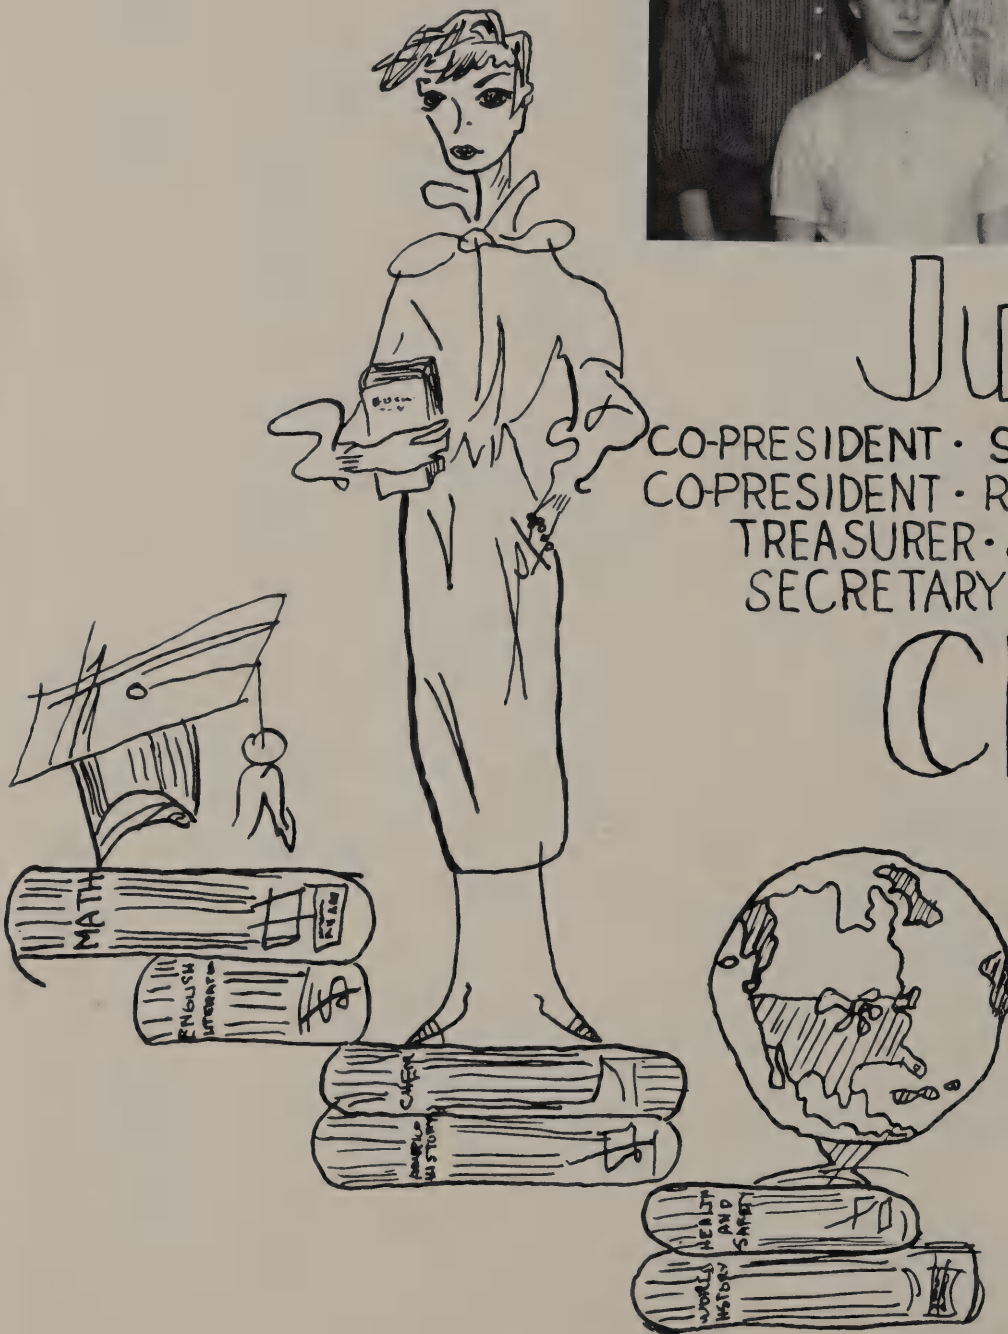 Ju
CO-PRESIDENT · S
CO-PRESIDENT · R
TREASURER ·
SECRETARY
C
MATH
ENGLISH
CHEM
HISTORY
HEALTH
AND
SAFETY
WORLD
HISTORY